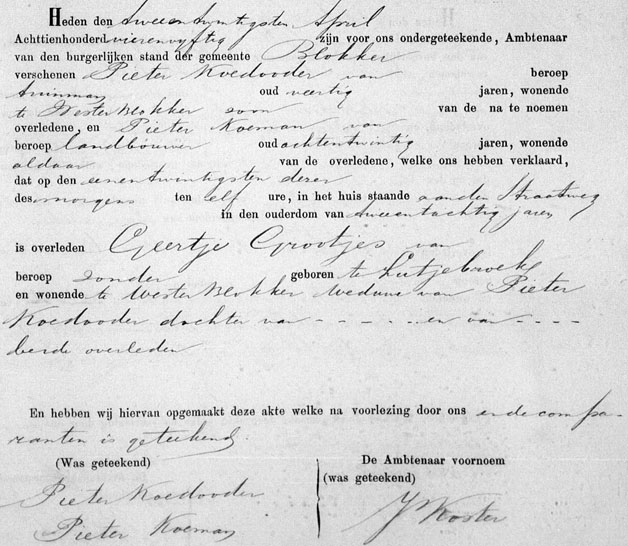 Heden den tweeentwintigsten April
Achttienhonderd vierenvyftig zijn voor ons ondergeteekende, Ambtenaar
van den burgerlijken stand der gemeente Blokker
verschenen Pieter Koedooder van beroep
tuinman oud veertig jaren, wonende
te Westerblokker zoon van de na te noemen
overledene, en Pieter Koeman van
beroep landbouwer oud achtentwintig jaren, wonende
aldaar van de overledene, welke ons hebben verklaard,
dat op den eenentwintigsten dezer
des morgens ten elf ure, in het huis staande aan den Straatweg
in den ouderdom van tweeentachtig jaren
is overleden Geertje Grootjes van
beroep zonder geboren te Lutjebroek
en wonende te Westerblokker weduwe van Pieter
Koedooder dochter van - - - - - - en van - - - -
beide overleden
En hebben wij hiervan opgemaakt deze akte welke na voorlezing door ons en de compa-
ranten is geteekend.
(Was geteekend) De Ambtenaar voornoem
(was geteekend)
Pieter Koedooder
Pieter Koeman
J Koster